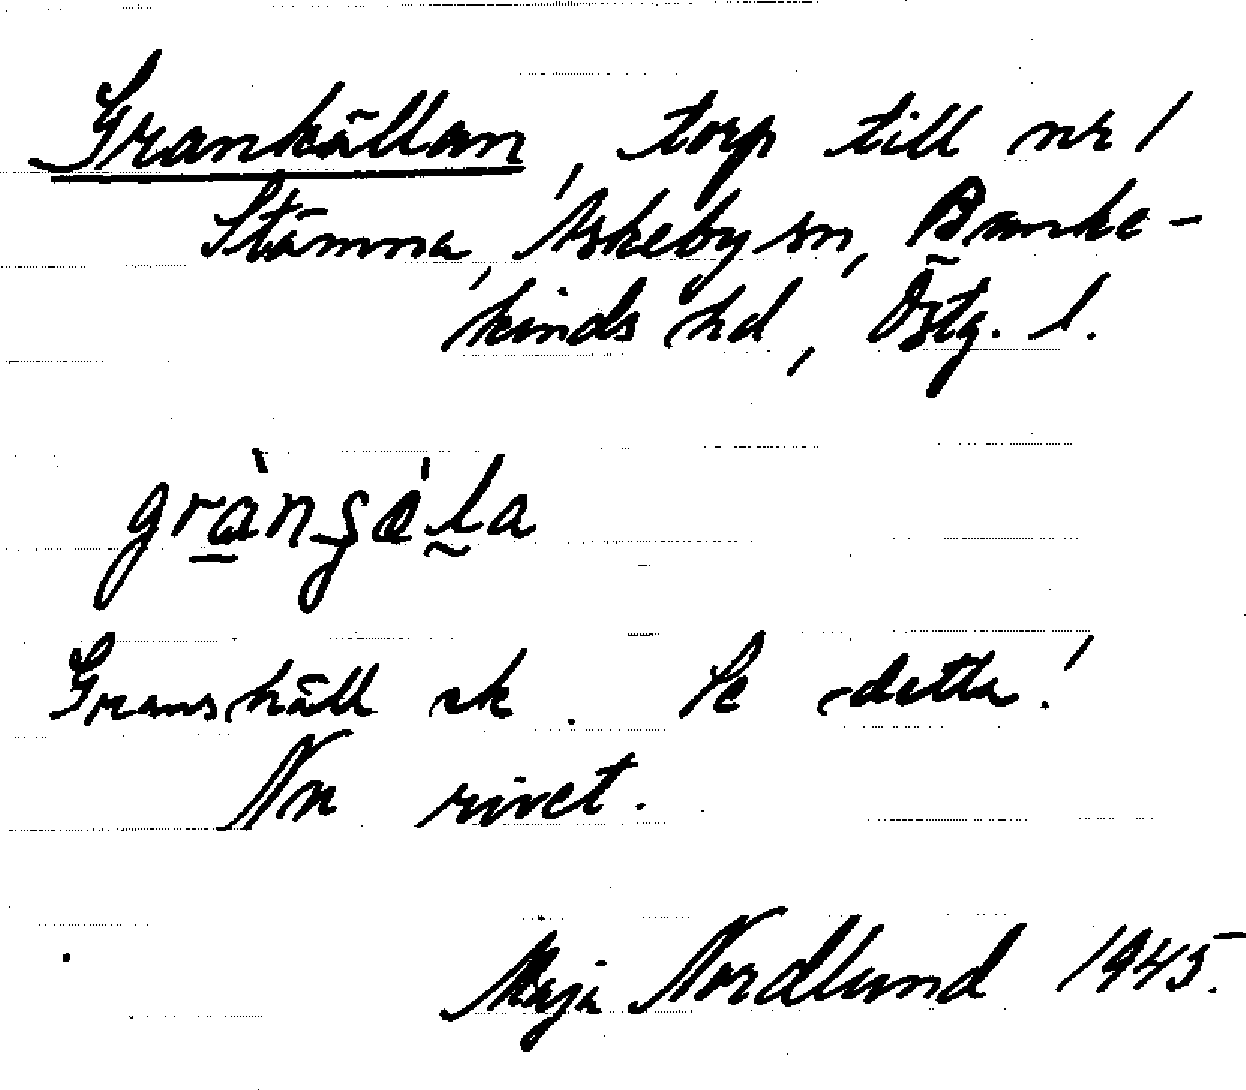 Grankällan, torp till nr 1
Stämma, Askeby sn, Banke-
kinds hd, Östg. l.
Granskäll ek. Se detta!
Nu rivet.
Maja Nordlund 1945.